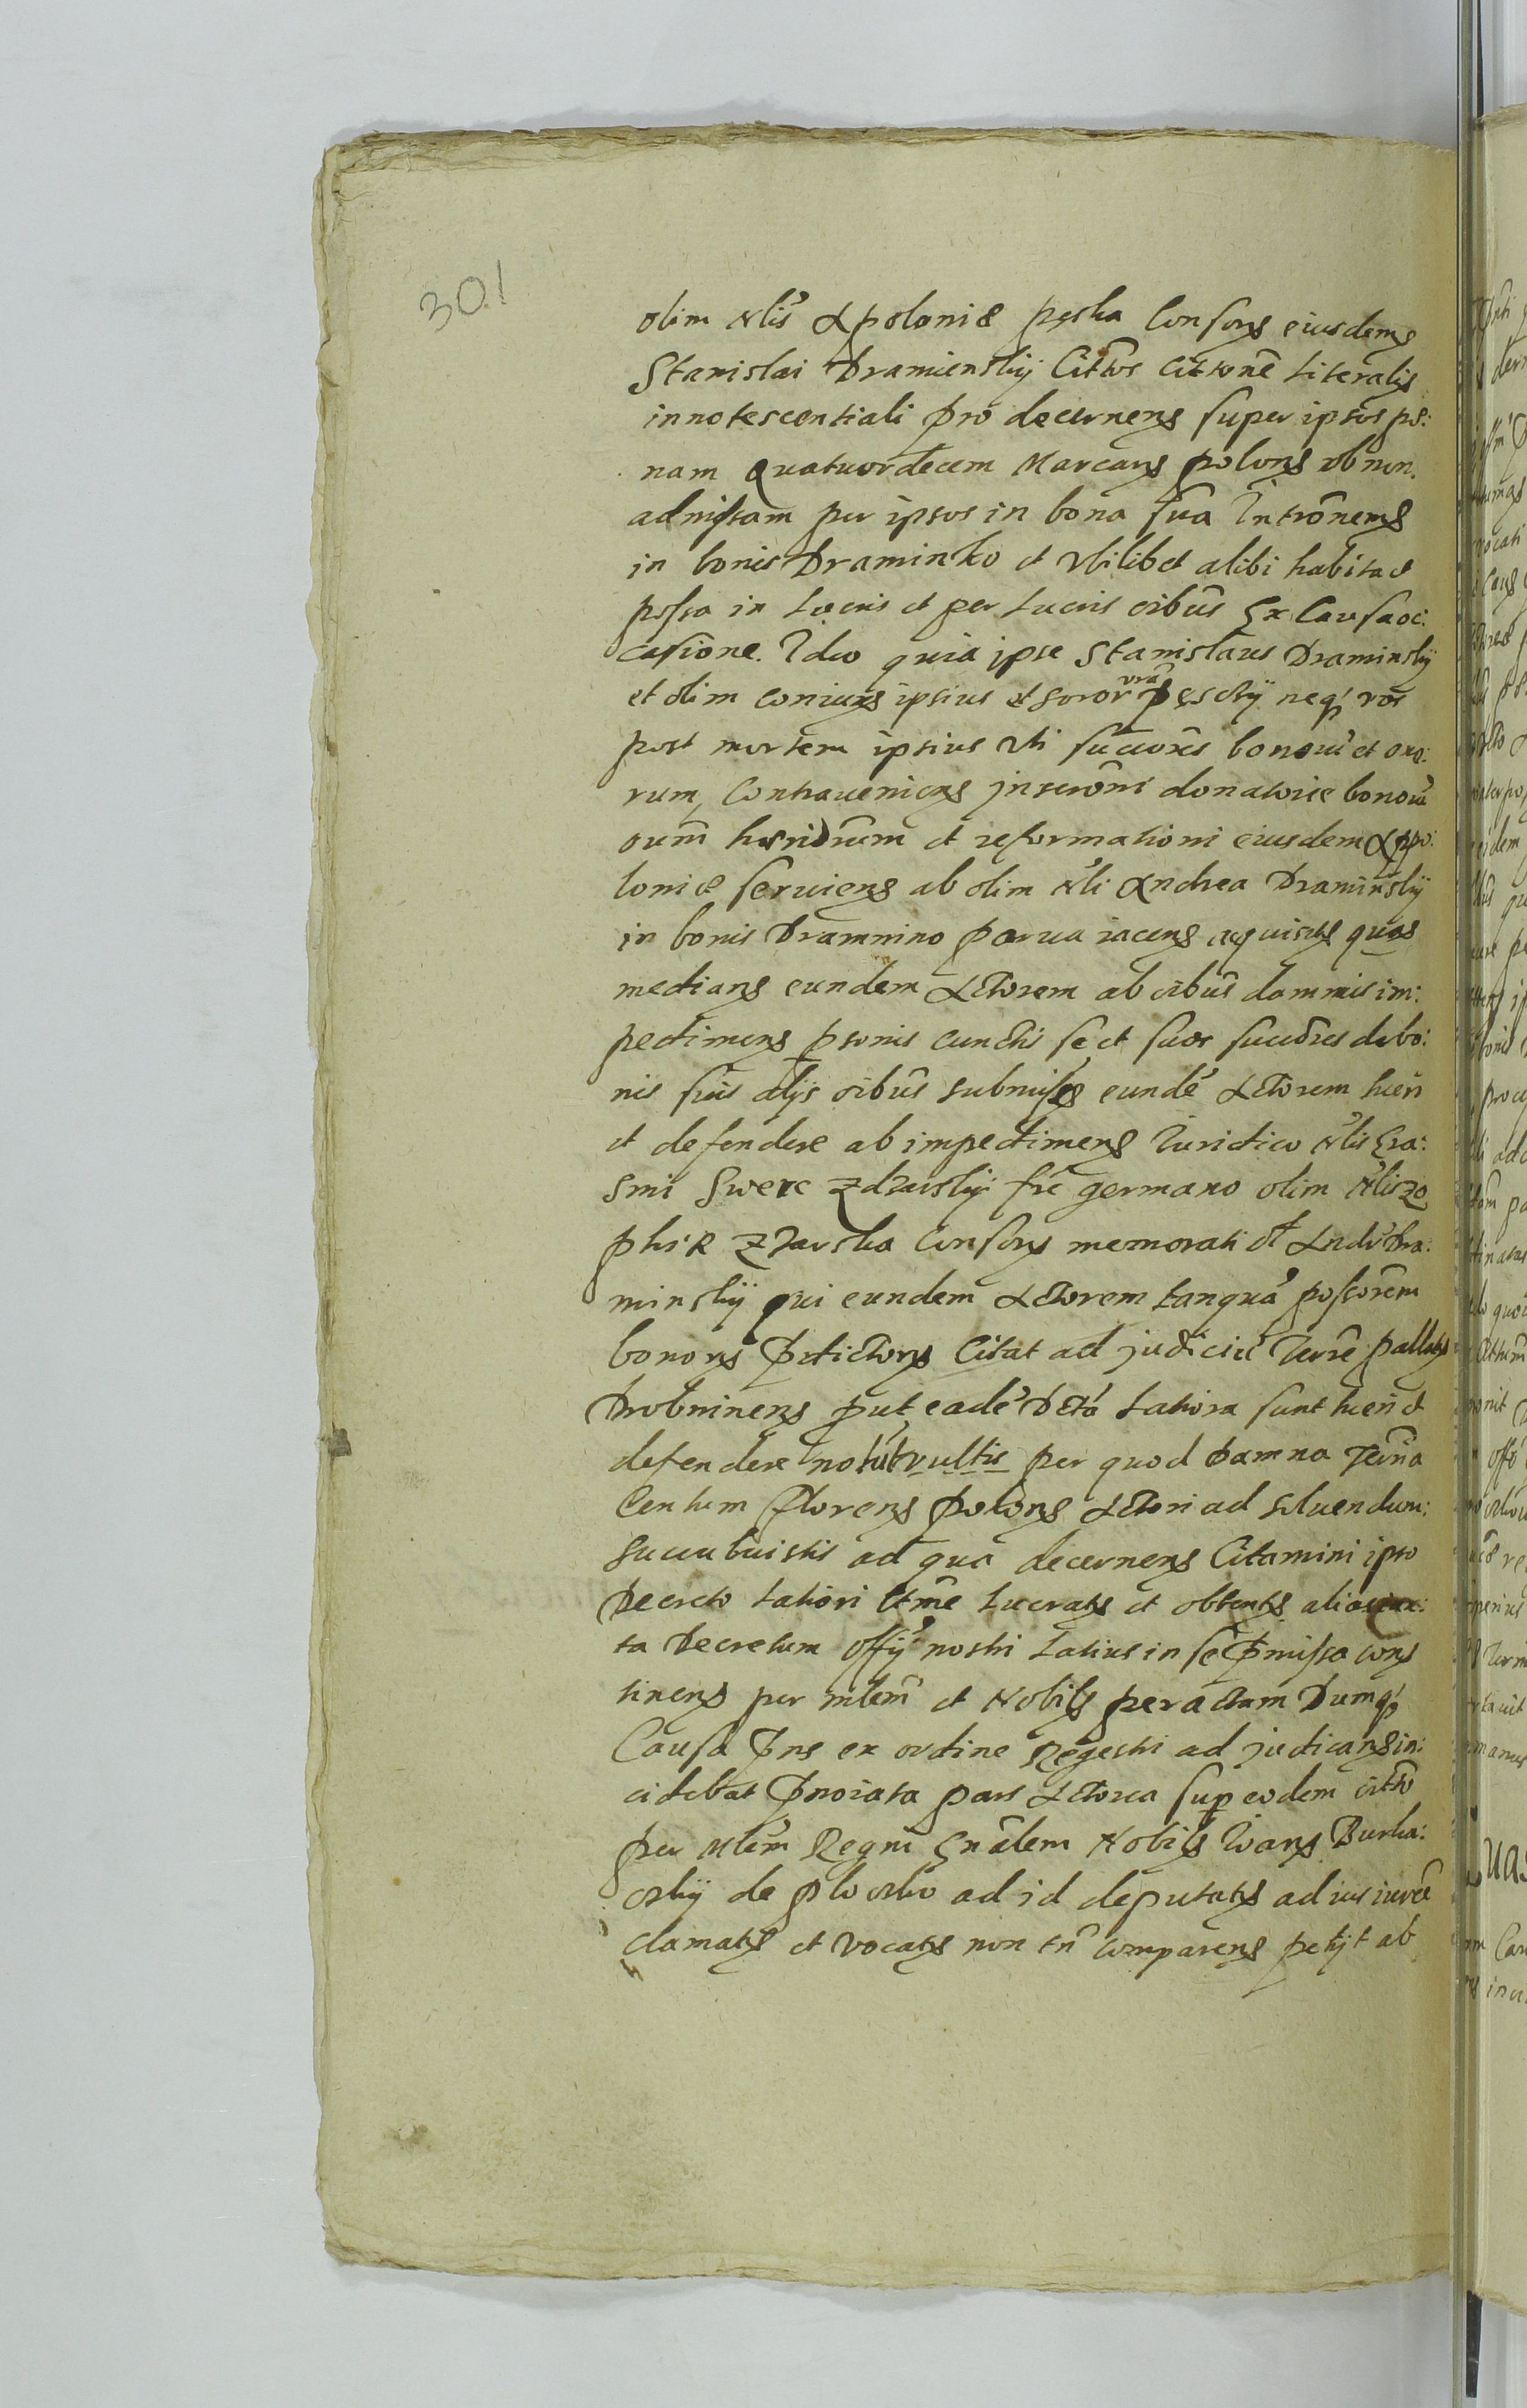 301
olim Nlis Apoloniæ Pęska Consors eiusdem
Stanislai Dramienskij Cittos Cittone Literalis
innotescentiali pro decernens super ipsos pœ:
nam Quatuordecem Marcars polons ob non
admissam per ipsos in bona sua Intronems
in bonis Draminko et Ubilibet alibi habita et
possa in Lucris et per Lucris oibus Ex Causa oc:
casione. Ideo quia ipse Stanislaus Draminskij
et olim coniunx ipsius et soror vra Pęsckij neq vos
post mortem ipsius Uti succores bonoru et one:
rum, Contraueniens inscroni donatorie bonoru
oum hæridrum et reformationi eiusdem Apo:
loniæ seruiens ab olim Nli Andrea Draminskij
in bonis Dramnino parua iacens acquisits quas
medians eundem Actorem ab oibus dammis im:
pedimens psonis cunctis se et suos succores de bo:
nis suis alijs oibus submises eunde Actorem tueri
et defendere ab impedimens Iuridico Nlis Era:
smi Swerc Zdzarskij fre germano olim Nlis Zo
phiæ Zdarska Consors memorati ol Andr Dra:
minskij qui eundem Actorem tanqua possorem
bonors prdictors Citat ad judiciu Terre pallats
Drobninens put eade Dcta Latiora sunt tueri et
defendere nolut vultis per quod Damna Terria
Centum Florens Polons Actori ad soluendum:
Succubuistis ad qua decernens Citamini ipso
Decreto Latiori Ltme Lucrats et obtents alias iux:
ta Decretum Offij nostri Latius in se prmissa cons
tinens per mlem et Nobils peractam Dumq
Causa prns ex ordine Regestri ad judicans in:
cidebat prnoiata pars Actorea sup eodem citto
per Mlem Regni Gnalem Nobils Ioans Burka:
czkij de Plocko ad id deputats ad ius iurce
clamats et vocats non tn comparens petijt ab